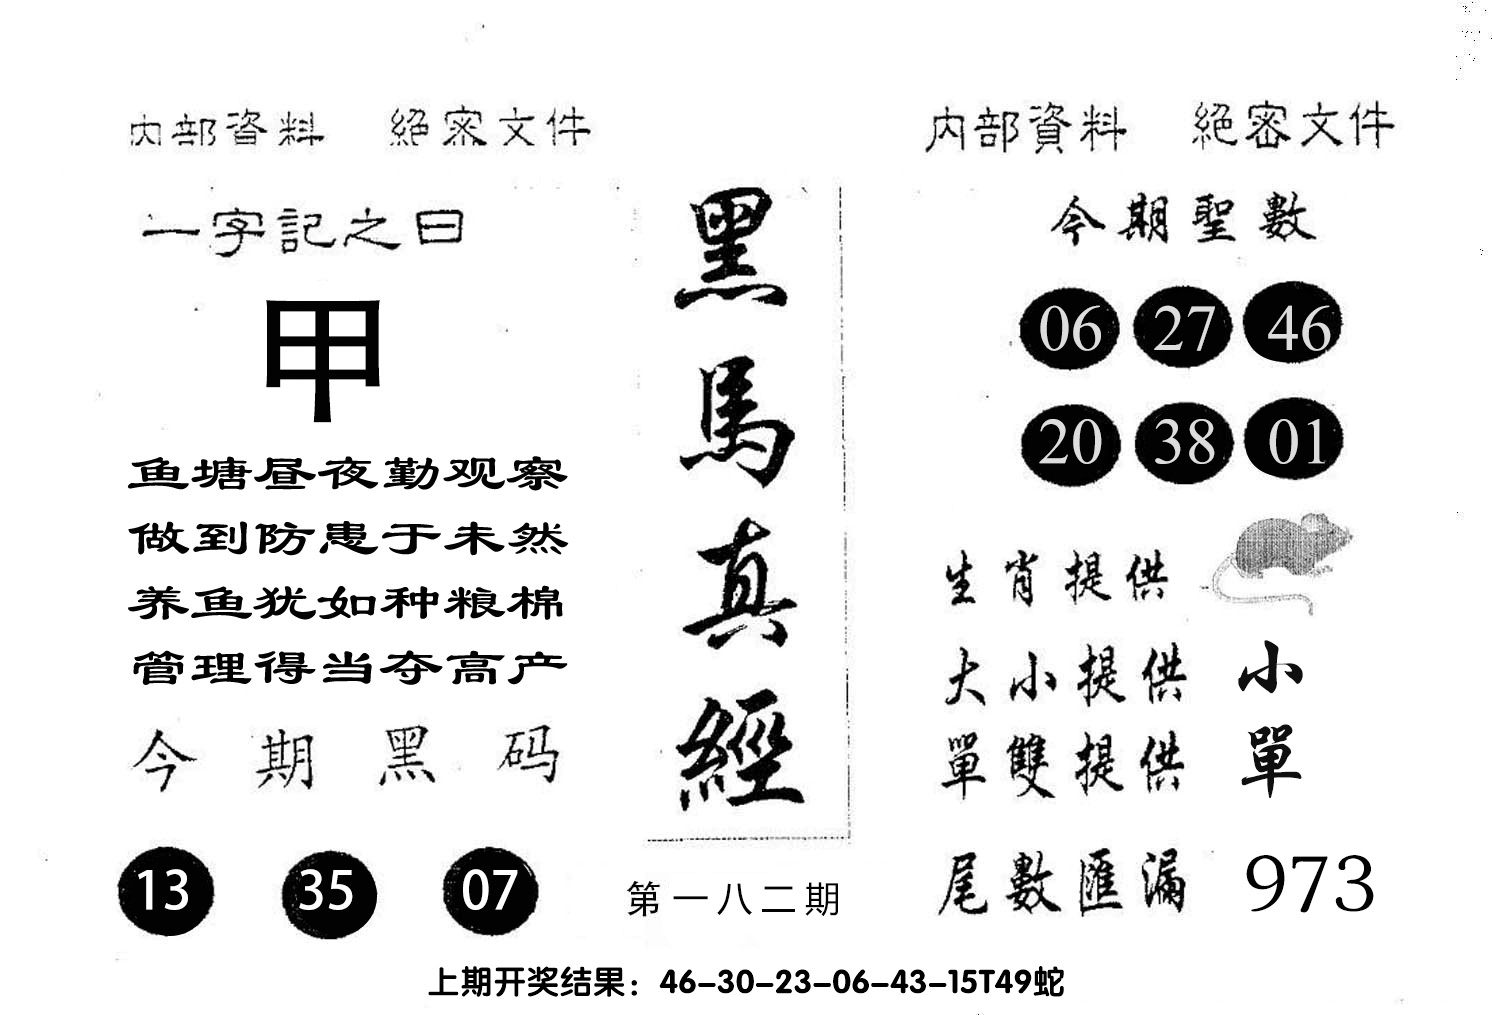 内部資料 絕密文件
一字記之曰
甲
鱼塘昼夜勤观察
做到防患于未然
养鱼犹如种粮棉
管理得当夺高产
今期黑码
13 35 07
黑馬真經
第一八二期
内部資料 絕密文件
今期聖數
06 27 46
20 38 01
生肖提供
大小提供 小
單雙提供 單
尾數匯漏 973
上期开奖结果：46-30-23-06-43-15T49蛇